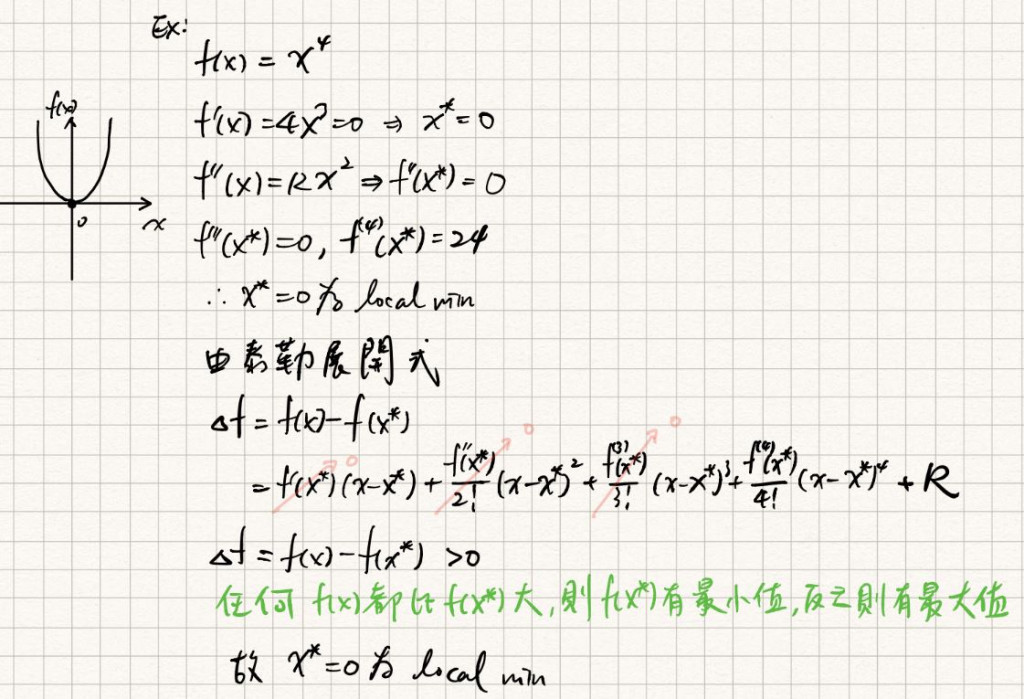 Ex:
f(x) = x⁴
f'(x) = 4x³ = 0 ⇒ x* = 0
f(x)
f''(x) = 12x² ⇒ f''(x*) = 0
0
x
f'''(x*) = 0, f⁽⁴⁾(x*) = 24
∴ x* = 0 為 local min
由泰勒展開式
Δf = f(x) - f(x*)
= f'(x*)(x-x*) + f''(x*)/2! (x-x*)² + f⁽³⁾(x*)/3! (x-x*)³ + f⁽⁴⁾(x*)/4! (x-x*)⁴ + R
0 0 0
Δf = f(x) - f(x*) > 0
任何 f(x) 都比 f(x*) 大, 則 f(x*) 有最小值, 反之則有最大值
故 x* = 0 為 local min